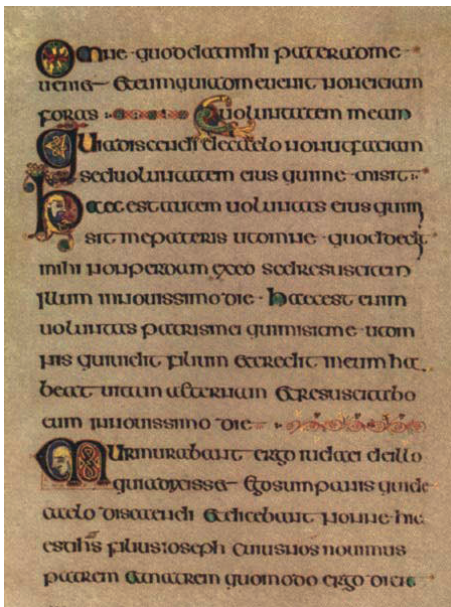 Omne quod dat mihi pater ad me
ueniet & eum qui ad me uenit non eiciam
foras uoluntatem meam
Quia discendi de caelo non ut faciam
sed uoluntatem eius qui me misit
Haec est autem uoluntas eius qui mi
sit me pateris ut omne quod dedit
mihi non perdam ex eo sed resuscitem
illum in nouissimo die haec est enim
uoluntas patris mei qui misit me ut om
nis qui uidit filium & credit in eum ha
beat uitam aeternam & resuscitabo
eum in nouissimo die
Murmurabant ergo iudaei de illo
quia dixisset ego sum panis qui de
caelo discendi & dicebant nonne hic
est ihs filius ioseph cuius nos nouimus
patrem & matrem quomodo ergo dicit